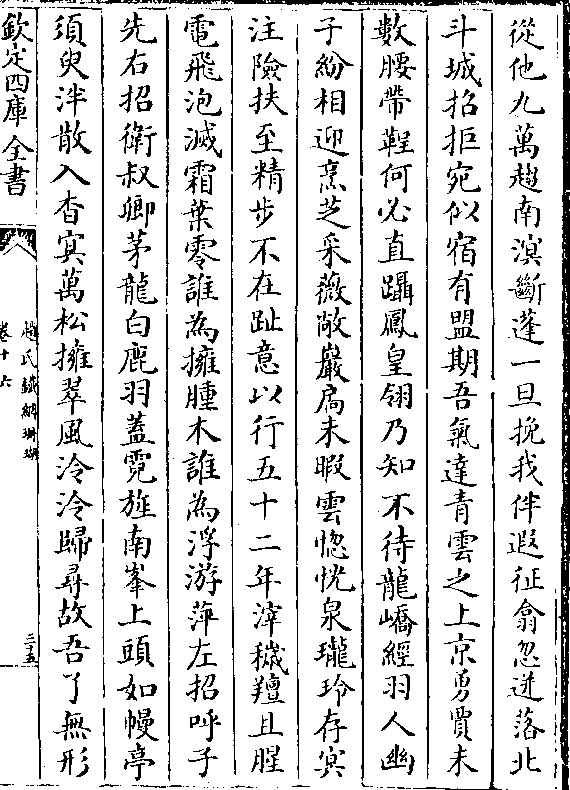 從他九萬趨南溟斷蓬一旦挽我伴遐征翕忽迸落北
斗城招拒宛似宿有盟期吾氣達青雲之上京勇賈未
數腰帶鞓何必直躡鳳皇翎乃知不待龍嶠經羽人幽
子紛相迎烹芝采薇敞巖扃未暇雲惚恍泉瓏玲存㝠
注險扶至精步不在趾意以行五十二年滓穢羶且腥
電飛泡滅霜葉零誰為擁腫木誰為浮游萍左招呼子
先右招衛叔卿茅龍白鹿羽蓋霓旌南峯上頭如幔亭
須臾泮散入杳㝠萬松擁翠風泠泠歸尋故吾了無形
欽定四庫全書
趙氏鐵網珊瑚
卷十六
三十五